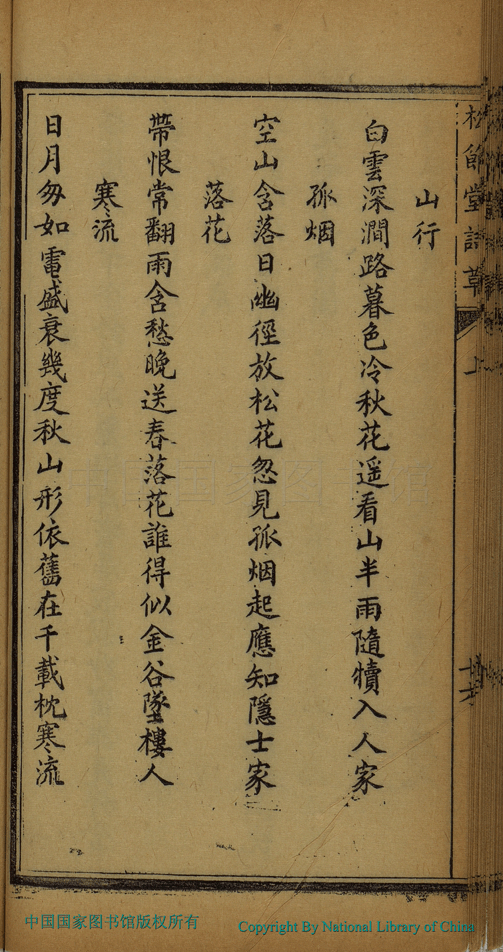 松節堂詩草
上
山行
白雲深澗路暮色冷秋花遥看山半雨隨犢入人家
孤烟
空山含落日幽徑放松花忽見孤烟起應知隱士家
落花
帶恨常翻雨含愁晚送春落花誰得似金谷墜樓人
寒流
日月匆如電盛衰幾度秋山形依舊在千載枕寒流
中国国家图书馆
中国国家图书馆版权所有
Copyright By National Library of China